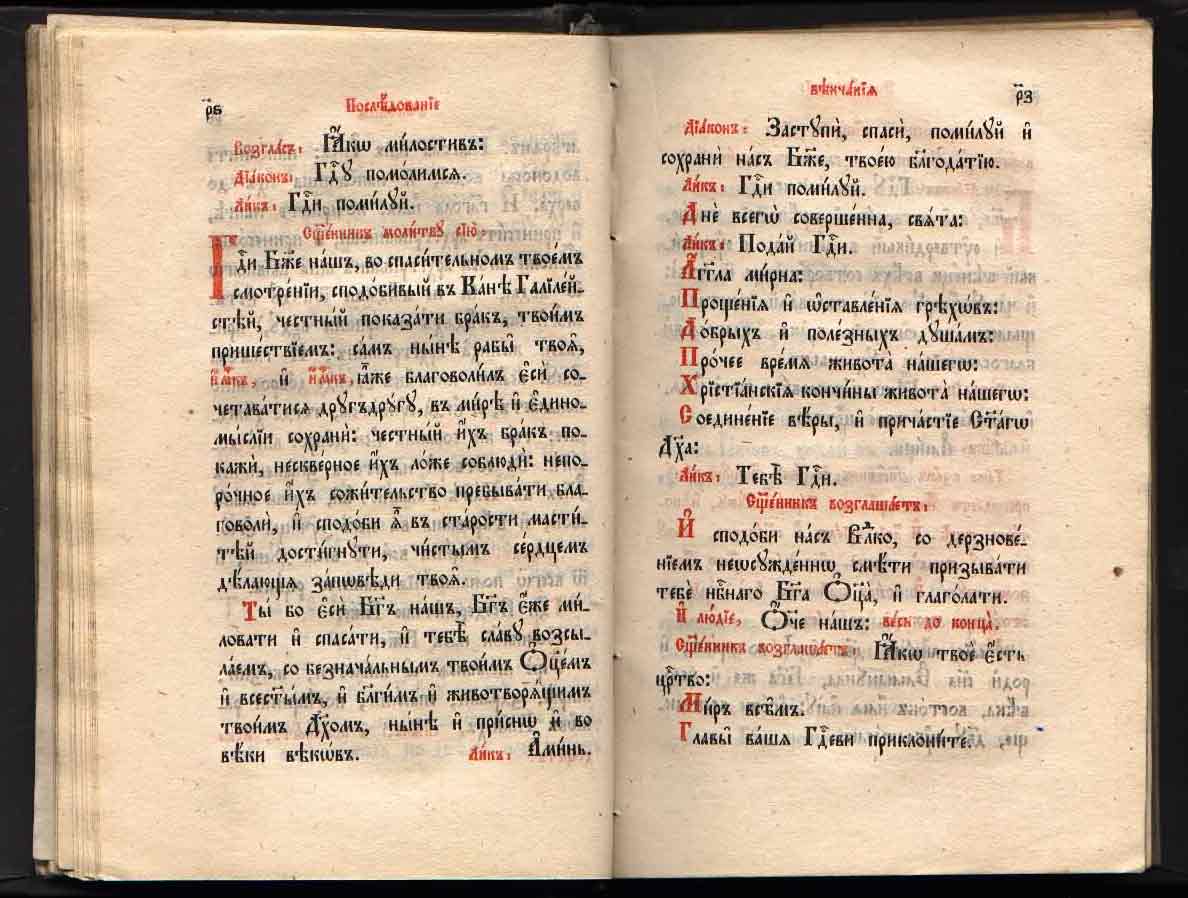 р҃ѕ
Послѣ́дованїе
Возгла́съ: Ꙗ҆́кѡ ми́лостивъ:
Дїа́конъ: Гдⷭ҇ꋋ помо́лимсѧ.
Ли́къ: Гдⷭ҇и поми́лꋋй.
Сщ҃е́нникъ моли́твꋋ сїю̀:
Гдⷭ҇и Бж҃е на́шъ, во спаси́тельномъ твое́мъ
смотре́нїи, сподо́бивый въ Ка́нѣ Галїле́й-
стѣй, че́стный показа́ти бра́къ, твои́мъ
прише́ствїемъ: са́мъ ны́нѣ рабы̑ твоѧ̑,
и҆́м҃къ, и҆ и҆́м҃къ, ꙗ҆̀же благоволи́лъ є҆сѝ со-
четава́тисѧ дрꋋ́гъдрꋋ́гꋋ, въ ми́рѣ и҆ є҆диномы́-
мы́слїи сохранѝ: че́стный и҆́хъ бра́къ по-
кажѝ, нескве́рное и҆́хъ ло́же соблюдѝ: непо-
ро́чное и҆́хъ сожи́тельство пребыва́ти бла-
говолѝ, и҆ сподо́би ѧ҆̀ въ ста́рости масти́-
тѣй дости́гнꋋти, чи́стымъ се́рдцемъ
дѣ́лающїѧ за́пѡвѣди твоѧ̑.
Ты́ бо є҆сѝ Бг҃ъ на́шъ, Бг҃ъ є҆́же ми́-
ловати и҆ спаса́ти, и҆ тебѣ̀ сла́вꋋ возсы-
ла́емъ, со безнача́льнымъ твои́мъ Ѻ҆ц҃е́мъ
и҆ всест҃ы́мъ, и҆ бл҃ги́мъ и҆ животворѧ́щимъ
твои́мъ Дх҃омъ, ны́нѣ и҆ при́снѡ и҆ во
вѣ́ки вѣкѡ́въ. Ли́къ: А҆ми́нь.
вѣнча́нїѧ
р҃з
Дїа́конъ: Застꋋпѝ, спасѝ, поми́лꋋй и҆
сохранѝ на́съ Бж҃е, твое́ю блг҃ода́тїю.
Ли́къ: Гдⷭ҇и поми́лꋋй.
Днѐ всегѡ̀ соверше́нна, свѧ́та:
Ли́къ: Пода́й Гдⷭ҇и.
А҆́гг҃ла ми́рна:
Проще́нїѧ и҆ ѡ҆ставле́нїѧ грѣхѡ́въ:
До́брыхъ и҆ поле́зныхъ дꋋша́мъ:
Про́чее вре́мѧ живота̀ на́шегѡ:
Хрїстїа́нскїѧ кончи́ны живота̀ на́шегѡ:
Соедине́нїе вѣ́ры, и҆ прича́стїе Ст҃а́гѡ
Дх҃а:
Ли́къ: Тебѣ̀ Гдⷭ҇и.
Сщ҃е́нникъ возглаша́етъ:
И҆ сподо́би на́съ Влⷣко, со дерзнове́-
нїемъ неѡсꋋжде́ннѡ смѣ́ти призыва́ти
тебѐ нбⷭ҇наго Бг҃а Ѻ҆ц҃а̀, и҆ глаго́лати.
И҆ лю́дїе, Ѻ҆́ч҃е на́шъ: ве́сь до конца̀.
Сщ҃е́нникъ возглаша́етъ: Ꙗ҆́кѡ твоѐ є҆́сть
црⷭ҇тво:
Ми́ръ всѣ̑мъ.
Главы̑ ва́шѧ Гдⷭ҇еви приклони́те.